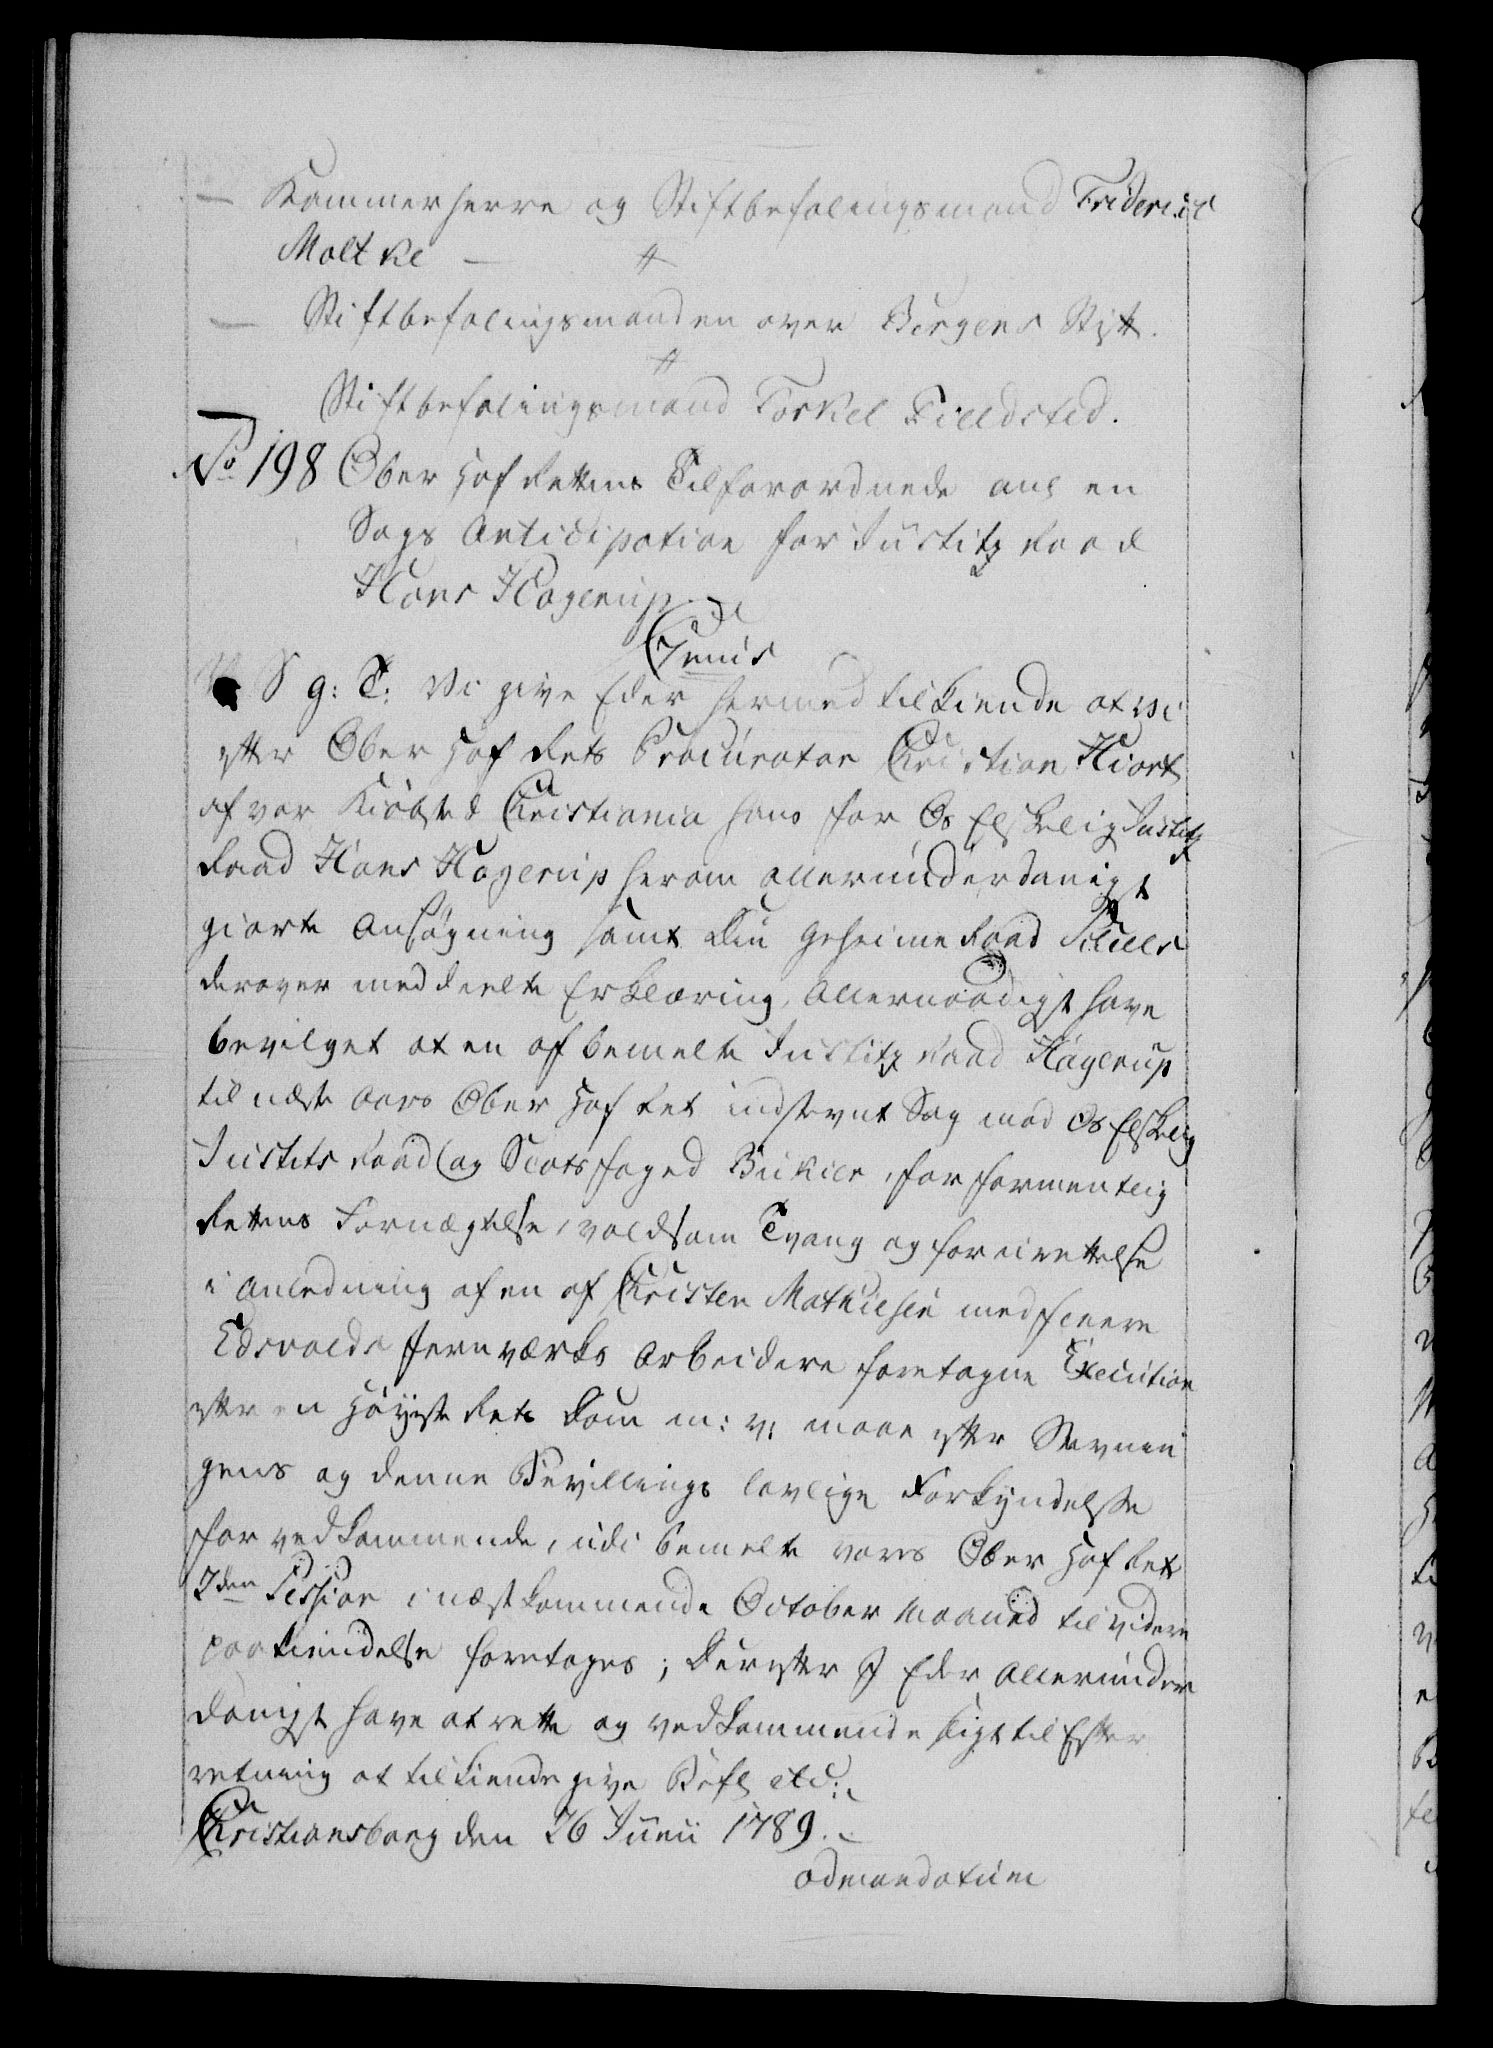 — Kammerherre og Stiftbefalingsmand Friderich
Moltke — "
— Stiftbefalingsmanden over Bergens Stift.
"
Stiftbefalingsmand Torkel Fieldsted.
No 198 Ober Hof Rettens Tilforordnede ang en
Sags Anticipation for Justitz Raad
Hans Hagerup.
Genis
V S g: T: Vi give Eder hermed tilkiende at vi
efter Ober Hof Rets Procurator Christian Hiort
af vor Kiøbsted Christiania hans for Os Elskelig Justitz
Raad Hans Hagerup herom allerunderdanigst
giorte Ansøgning samt Din Geheime Raad
derover meddeelte Erklæring, Allernaadigst have
bevilget at en af bemelte Justitz Raad Hagerup
til næste Aars Ober Hof Ret indstevnt Sag mod Os Elskelig
Justits Raad og Slotsfoged, for formentlig
Rettens Fornægtelse, voldsom Tvang og foruirettelse
i Anledning af en af Christen Mathiesen med fleere
Edsvolds Jernværks Arbeidere foretagne Execution
efter en Høyeste Rets Dom m: v: maae efter Stevnin
gens og denne Bevillings lovlige Forkyndelse
for vedkommende, udi bemelte vores Ober Hof Ret
2den Session i næstkommende October Maaned til videre
paakiendelse foretages; Derefter I Eder Allerunder
danigst have at rette og vedkommende sligt til Efter
retning at tilkiendegive Befl etc:
Christiansborg den 26 Junii 1789.
ad mandatum